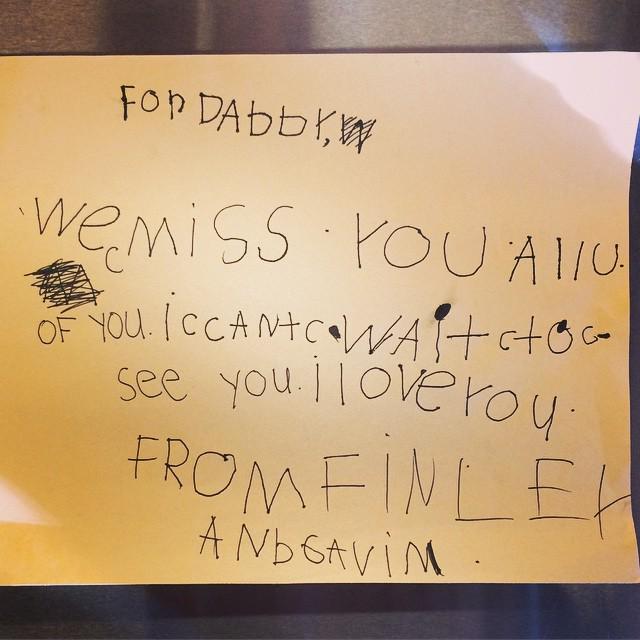 For DAbby,
We miss you Allu.
OF YOU. i ccAntc WAit ctoc
see you. i love you.
FROM FINLEY
ANb GAVIN.